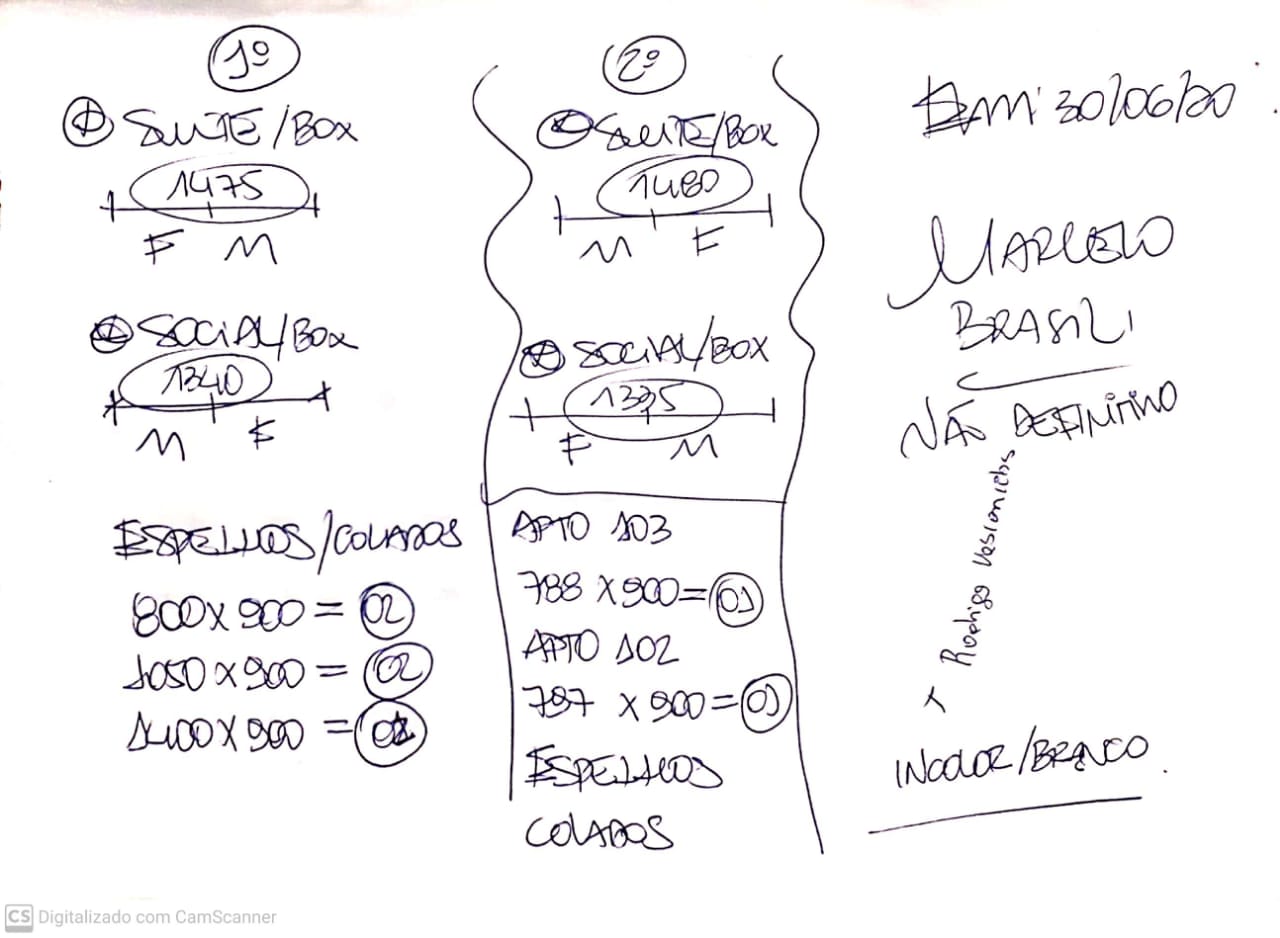 1º
SUITE/BOX
1475
F M
SOCIAL/BOX
1340
M F
ESPELHOS/COLADOS
800 X 900 = 02
1050 X 900 = 02
1400 X 900 =
2º
SUITE/BOX
1480
M F
SOCIAL/BOX
1335
F M
APTO 103
788 X 900 = 01
APTO 102
797 X 900 = 01
ESPELHOS
COLADOS
30/06/20
MARCELO
BRASILI
NÃO DEFINITIVO
Rodrigo
INCOLOR/BRANCO.
CS Digitalizado com CamScanner